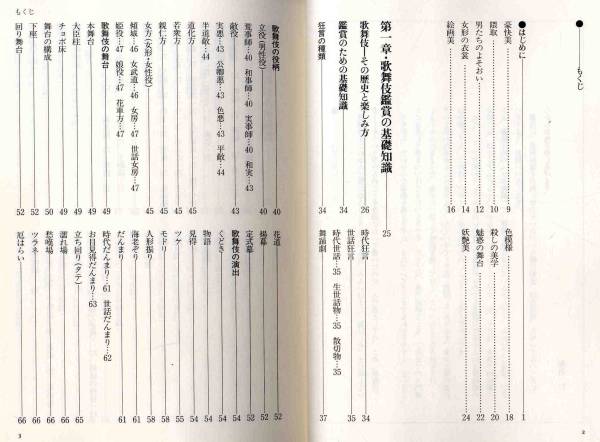 ●――もくじ
●はじめに……1
豪快美……9
隈取……10
男たちのよそおい……12
女形の衣裳……14
絵画美……16
色模様……18
殺しの美学……20
魅惑の舞台……22
妖艶美……24
第一章・歌舞伎鑑賞の基礎知識……25
歌舞伎―その歴史と楽しみ方……26
鑑賞のための基礎知識……34
狂言の種類……34
時代狂言……34
世話狂言……35
時代世話…35 生世話物…35 散切物…35
舞踊劇……37
2
もくじ
歌舞伎の役柄……40
立役(男性役)……40
荒事師…40 和事師…40 実事師…40 和実…43
敵役……43
実悪…43 公卿悪…43 色悪…43 平敵…44
半道敵…44
道化方……45
若衆方……45
親仁方……45
女方(女形・女性役)……45
傾城…46 女武道…46 女房…47 世話女房…47
姫役…47 娘役…47 花車方…47
歌舞伎の舞台……49
本舞台……49
大臣柱……49
チョボ床……49
舞台の構成……50
下座……52
回り舞台……52
花道……52
揚幕……52
定式幕……52
歌舞伎の演出……54
くどき……54
物語……54
見得……54
ツケ……55
モドリ……58
人形振り……58
海老ぞり……61
だんまり……61
時代だんまり…61 世話だんまり…62
お目見得だんまり…63
立ち回り(タテ)……65
濡れ場……66
愁嘆場……66
ツラネ……66
厄はらい……66
3